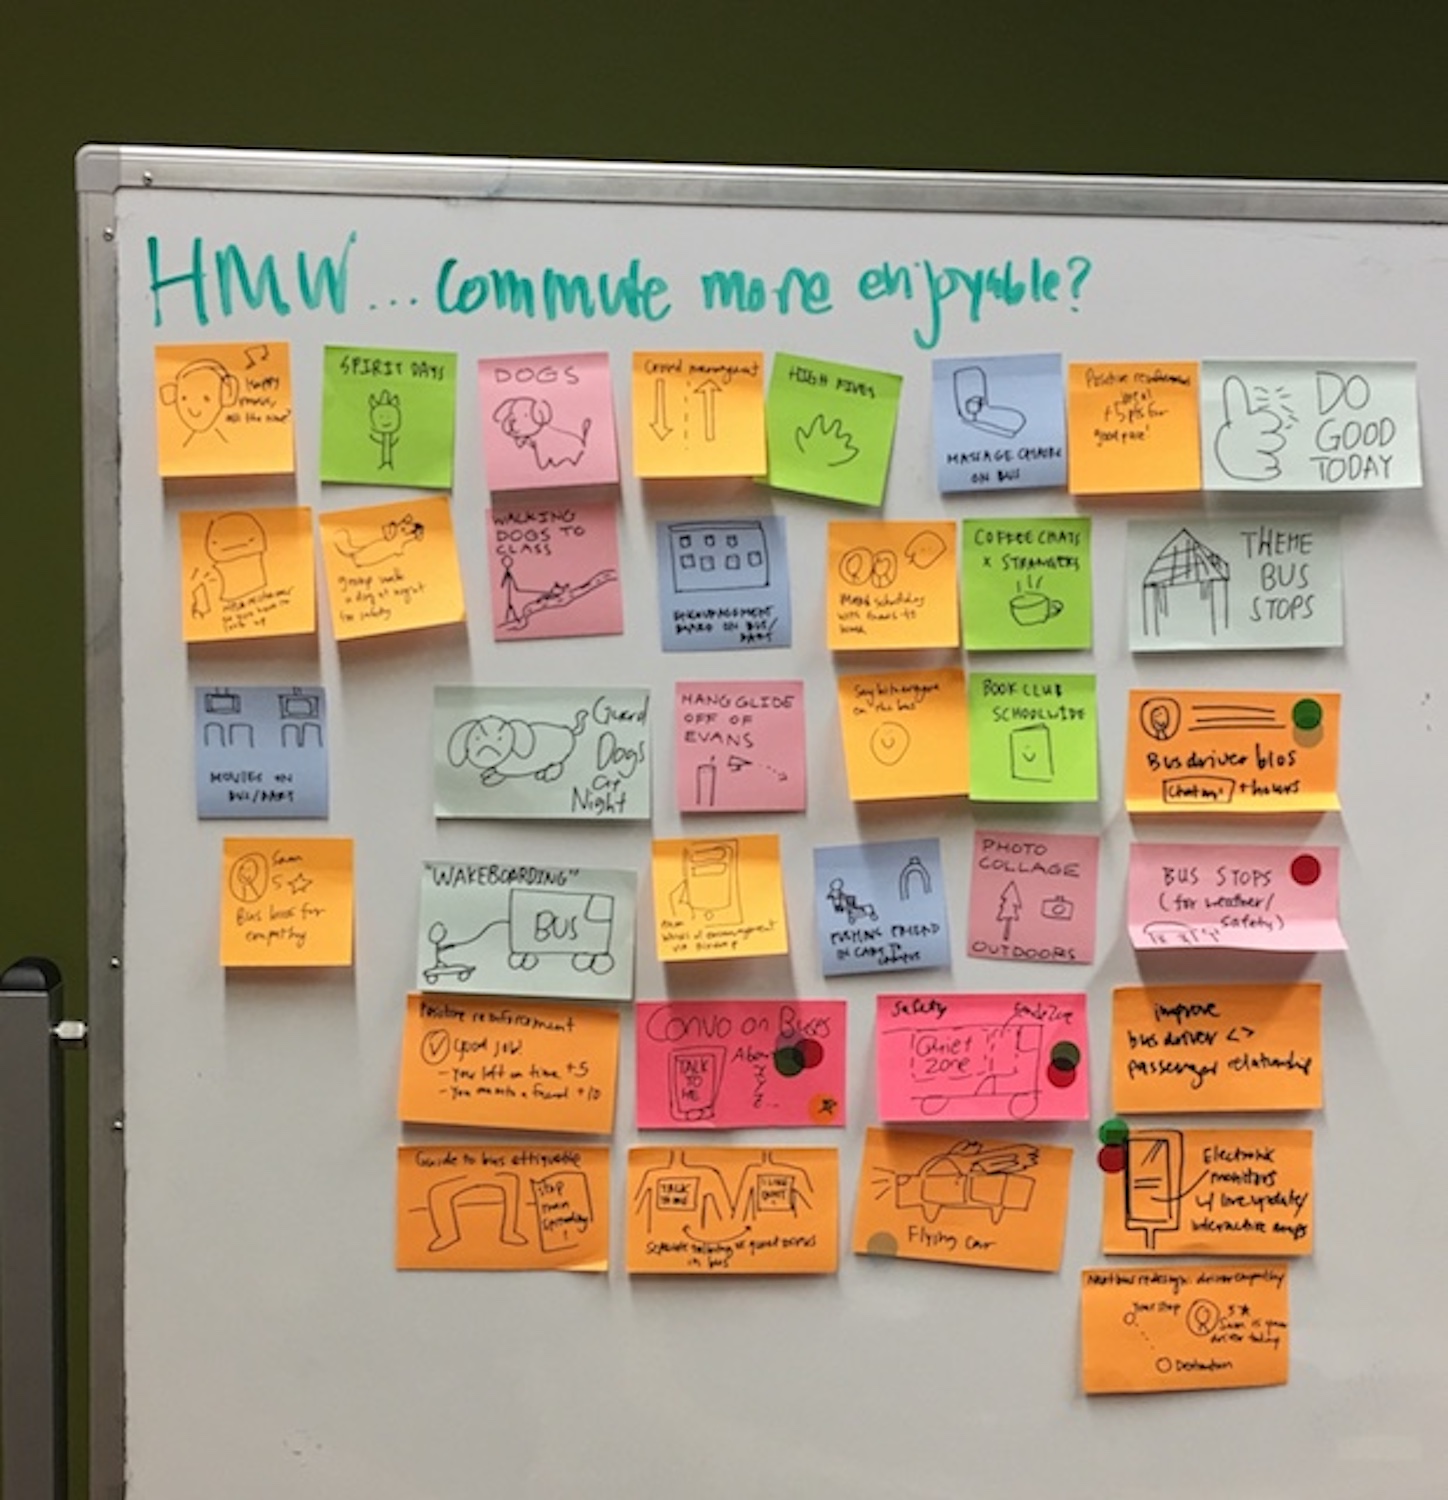 HMW... commute more enjoyable?
Happy
music,
all the time?
SPIRIT DAYS
DOGS
Crowd management
HIGH FIVES
MASSAGE CHAIRS
ON BUS
Positive reinforcement
+5 pts for
good pace!
DO
GOOD
TODAY
so you have to
look up
group walk
a dog at night
for safety
WALKING
DOGS TO
CLASS
ENCOURAGEMENT
BOARD ON BUS/
BART
with
COFFEE CHATS
X STRANGERS
THEME
BUS
STOPS
MOVIES ON
BUS/BART
Guard
Dogs
at
Night
HANG GLIDE
OFF OF
EVANS
Say hi to everyone
on the bus
BOOK CLUB
SCHOOLWIDE
Bus driver bios
+ hours
Sam
5 ☆
Bus bios for
empathy
"WAKEBOARDING"
BUS
words of encouragement
via
PUSHING FRIEND
IN CART TO
CAMPUS
PHOTO
COLLAGE
OUTDOORS
BUS STOPS
(for weather/
safety)
Positive reinforcement
Good job.
- You left on time +5
- You a friend +10
Convo on Buses
TALK
TO
ME
About
X
Y
Z...
Safety
Quiet
zone
improve
bus driver <>
passenger relationship
Guide to bus ettiquette
Stop
man
spreading
!
TALK
TO ME
I LIKE
QUIET
Separate talking vs quiet zones
in bus
Flying car
Electronic
monitors
w/ live update/
interactive maps
Nextbus redesign: driver empathy
your stop
5★
Sam is your
driver today
Destination